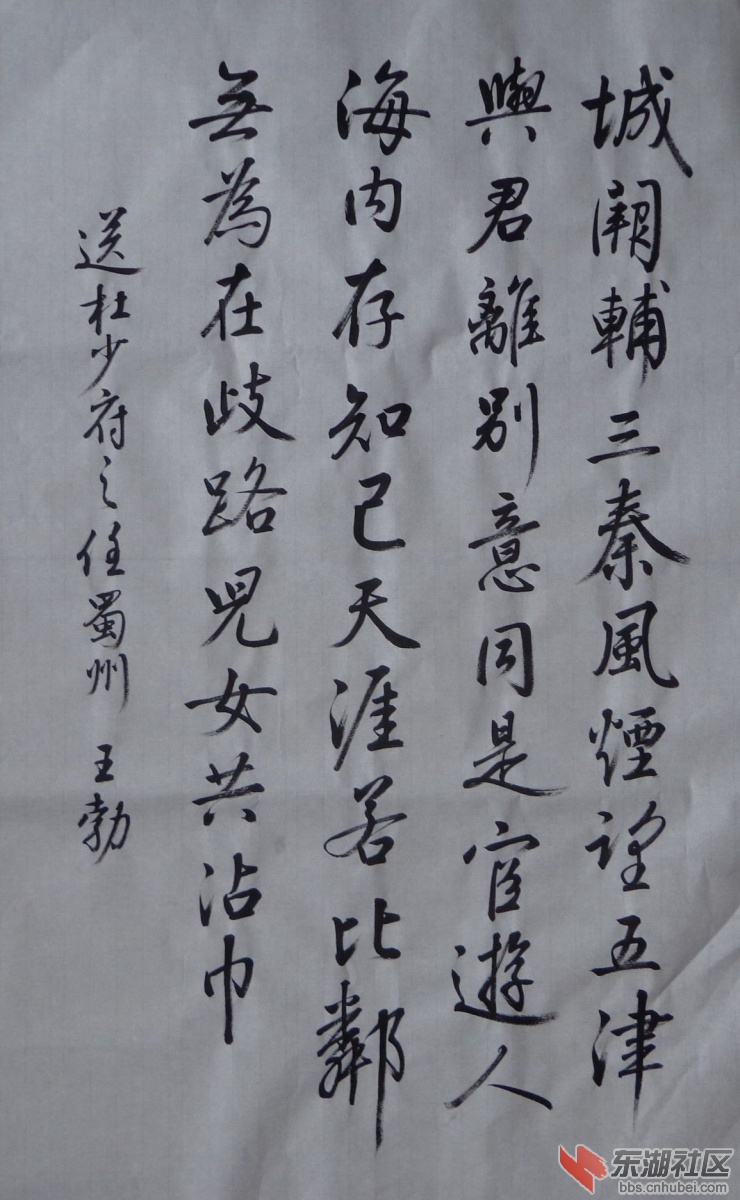 城闕輔三秦風煙望五津
與君離別意同是宦遊人
海内存知己天涯若比鄰
無為在歧路兒女共沾巾
送杜少府之任蜀州 王勃
东湖社区
bbs.cnhubei.com